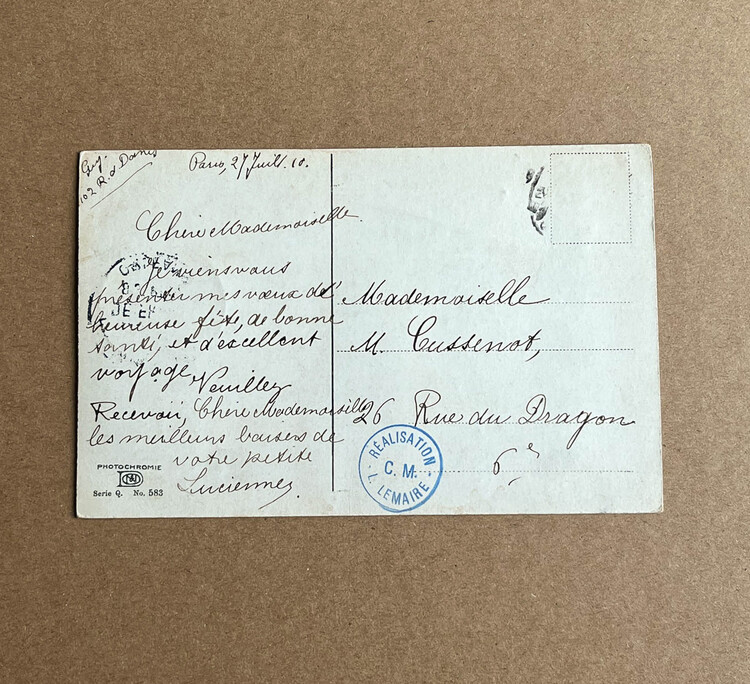 102 R. d
Paris, 27 Juill. 10.
Chère Mademoiselle
Je viens vous
présenter mes vœux de l'
heureuse fête, de bonne
santé, et d'excellent
voyage, Veuillez
Recevoir, Chère Mademoiselle
les meilleurs baisers de
votre petite
Lucienne
PHOTOCHROMIE
Serie Q. No. 583
Mademoiselle
M. Cussenot,
26 Rue du Dragon
6e
RÉALISATION
C. M.
L. LEMAIRE